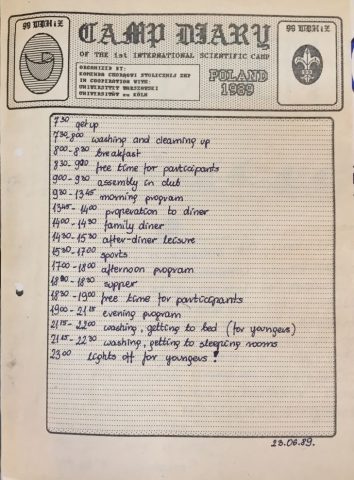 99 WDHiZ
CAMP DIARY
99 WDHiZ
OF THE 1st INTERNATIONAL SCIENTIFIC CAMP
ORGANIZED BY:
KOMENDA CHORĄGWI STOŁECZNEJ ZHP
IN COOPERATION WITH:
UNIWERSYTET WARSZAWSKI
UNIVERSITÄT zu KÖLN
POLAND
1989
7.30 get up
7.30-8.00 washing and cleaning up
8.00-8.30 breakfast
8.30-9.00 free time for participants
9.00-9.30 assembly in club
9.30-13.45 morning program
13.45-14.00 preperation to diner
14.00-14.30 family diner
14.30-15.30 after-diner leisure
15.30-17.00 sports
17.00-18.00 afternoon program
18.00-18.30 supper
18.30-19.00 free time for participants
19.00-21.15 evening program
21.15-22.00 washing, getting to bed (for youngers)
21.45-22.30 washing, getting to sleeping rooms
23.00 lights off for youngers!
23.06.89.